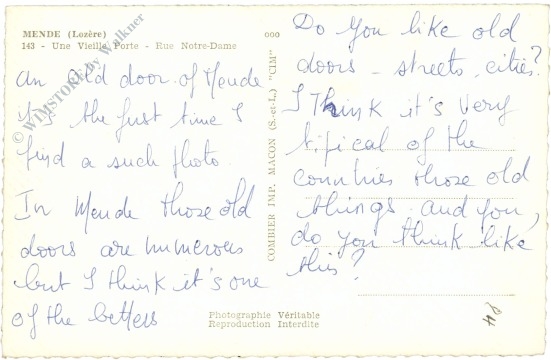 MENDE (Lozère)
143 - Une Vieille Porte - Rue Notre-Dame
an old door of Mende
it's the first time I
find a such photo.
In Mende those old
doors are numerous
but I think it's one
of the betters
© WIMSTORE by Walkner
COMBIER IMP. MACON (S.-et-L.) "CIM"
ooo
Do you like old
doors - streets, cities?
I Think it's very
tipical of the
countries those old
things and you,
do you think like
this?
Photographie Véritable
Reproduction Interdite